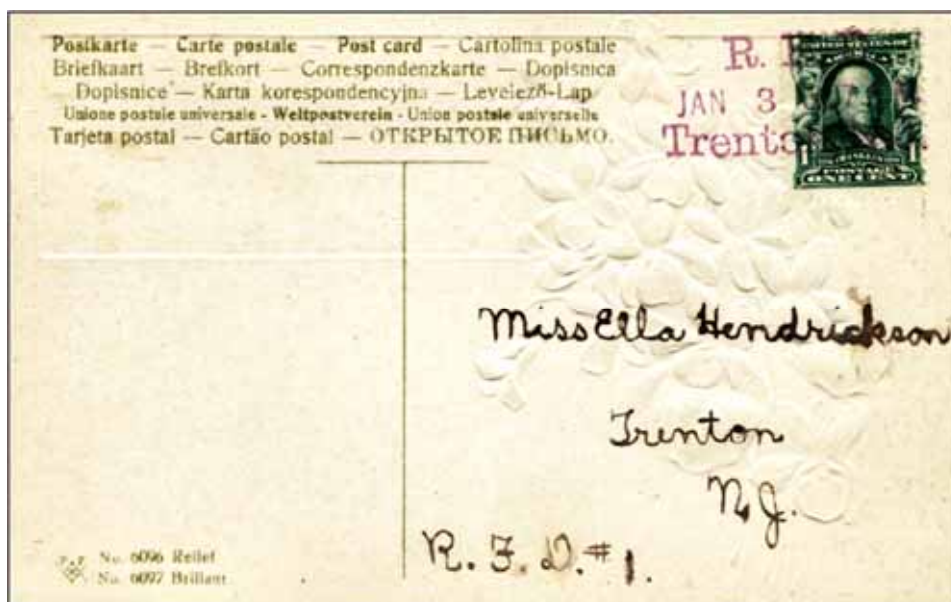 Postkarte — Carte postale — Post card — Cartolina postale
Briefkaart — Brefkort — Correspondenzkarte — Dopisnica
Dopisnice — Karta korespondencyjna — Levelező-Lap
Unione postale universale - Weltpostverein - Union postale universelle
Tarjeta postal — Cartão postal — ОТКРЫТОЕ ПИСЬМО.
R.
JAN 3
Trento
UNITED STATES OF
AMERICA
1 1
POSTAGE
ONE CENT
Miss Ella Hendrickson
Trenton
N.J.
R. F. D. #1.
No. 6096 Relief
No. 6097 Brillant